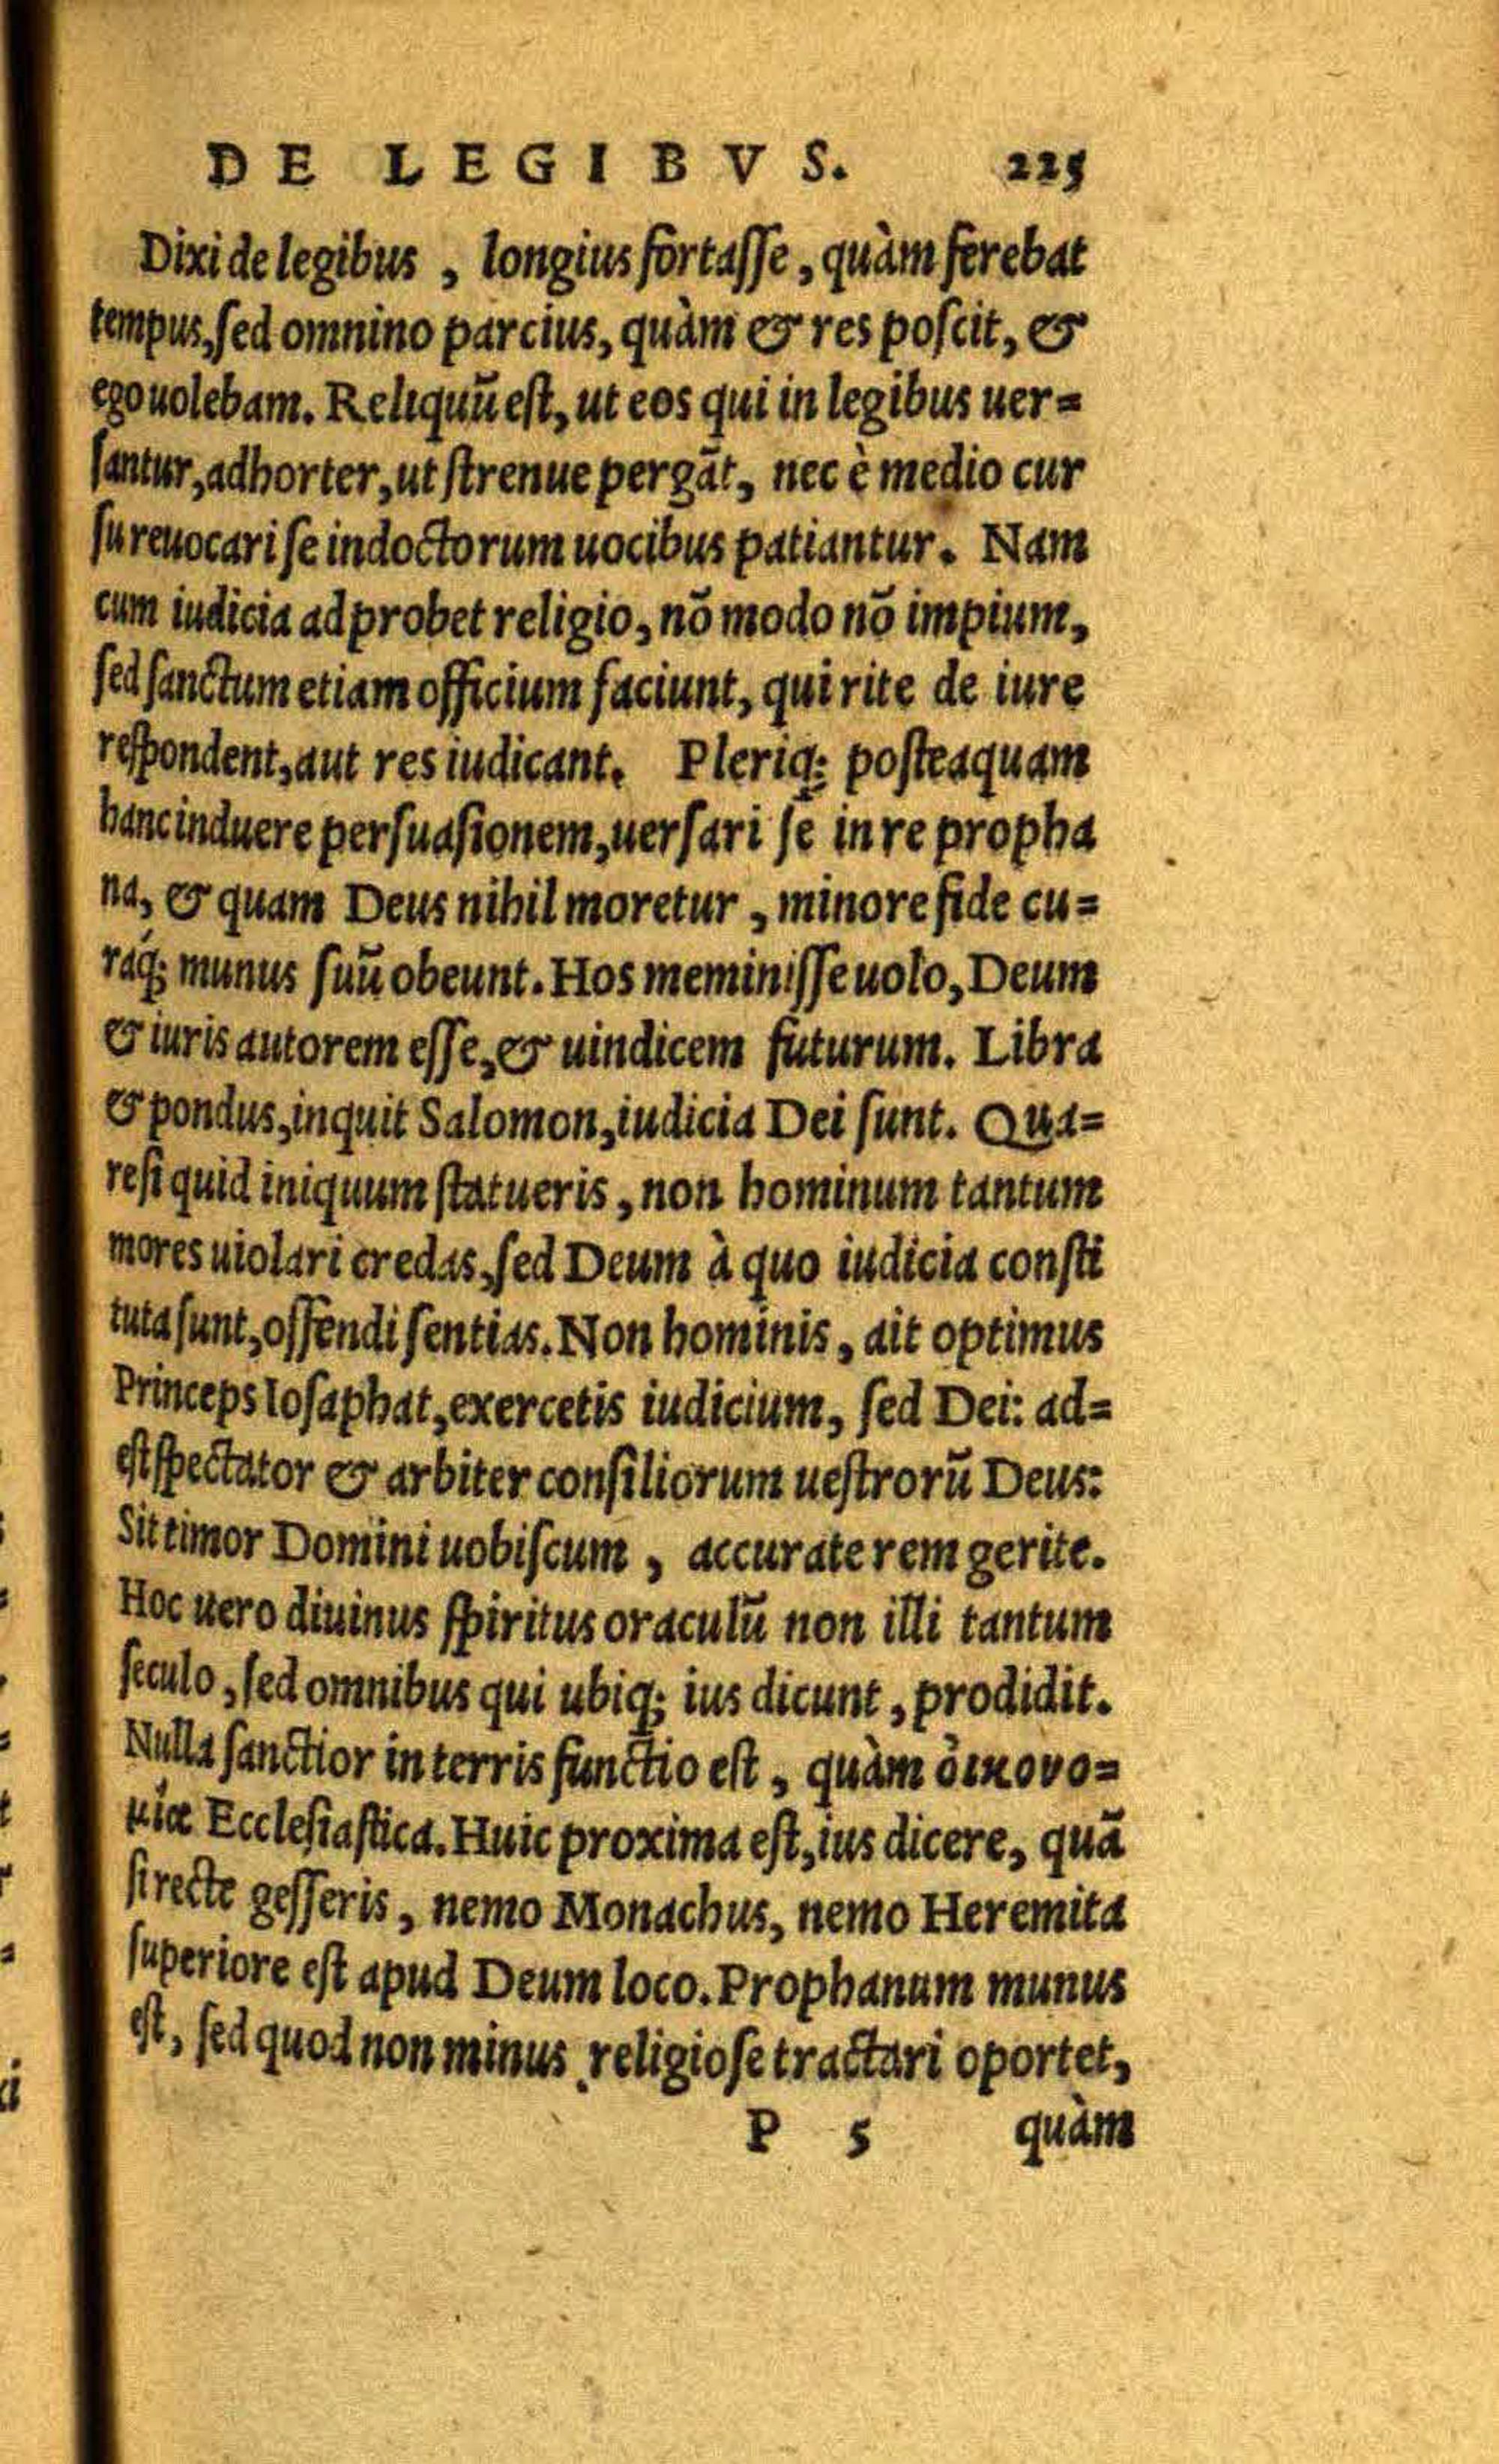 DE LEGIBVS. 225
Dixi de legibus, longius fortasse, quàm ferebat
tempus, sed omnino parcius, quàm & res poscit, &
ego uolebam. Reliquũ est, ut eos qui in legibus uer=
santur, adhorter, ut strenue pergãt, nec è medio cur
su reuocari se indoctorum uocibus patiantur. Nam
cum iudicia adprobet religio, nõ modo nõ impium,
sed sanctum etiam officium faciunt, qui rite de iure
respondent, aut res iudicant. Pleriq; posteaquam
hanc induere persuasionem, uersari se in re propha
na, & quam Deus nihil moretur, minore fide cu=
ráq; munus suũ obeunt. Hos meminisse uolo, Deum
& iuris autorem esse, & uindicem futurum. Libra
& pondus, inquit Salomon, iudicia Dei sunt. Qua=
re si quid iniquum statueris, non hominum tantum
mores uiolari credas, sed Deum à quo iudicia consti
tuta sunt, offendi sentias. Non hominis, ait optimus
Princeps Iosaphat, exercetis iudicium, sed Dei: ad=
est spectator & arbiter consiliorum uestrorũ Deus:
Sit timor Domini uobiscum, accurate rem gerite.
Hoc uero diuinus spiritus oraculũ non illi tantum
seculo, sed omnibus qui ubiq; ius dicunt, prodidit.
Nulla sanctior in terris functio est, quàm ὀικονο=
μία Ecclesiastica. Huic proxima est, ius dicere, quã
si recte gesseris, nemo Monachus, nemo Heremita
superiore est apud Deum loco. Prophanum munus
est, sed quod non minus religiose tractari oportet,
P 5 quàm